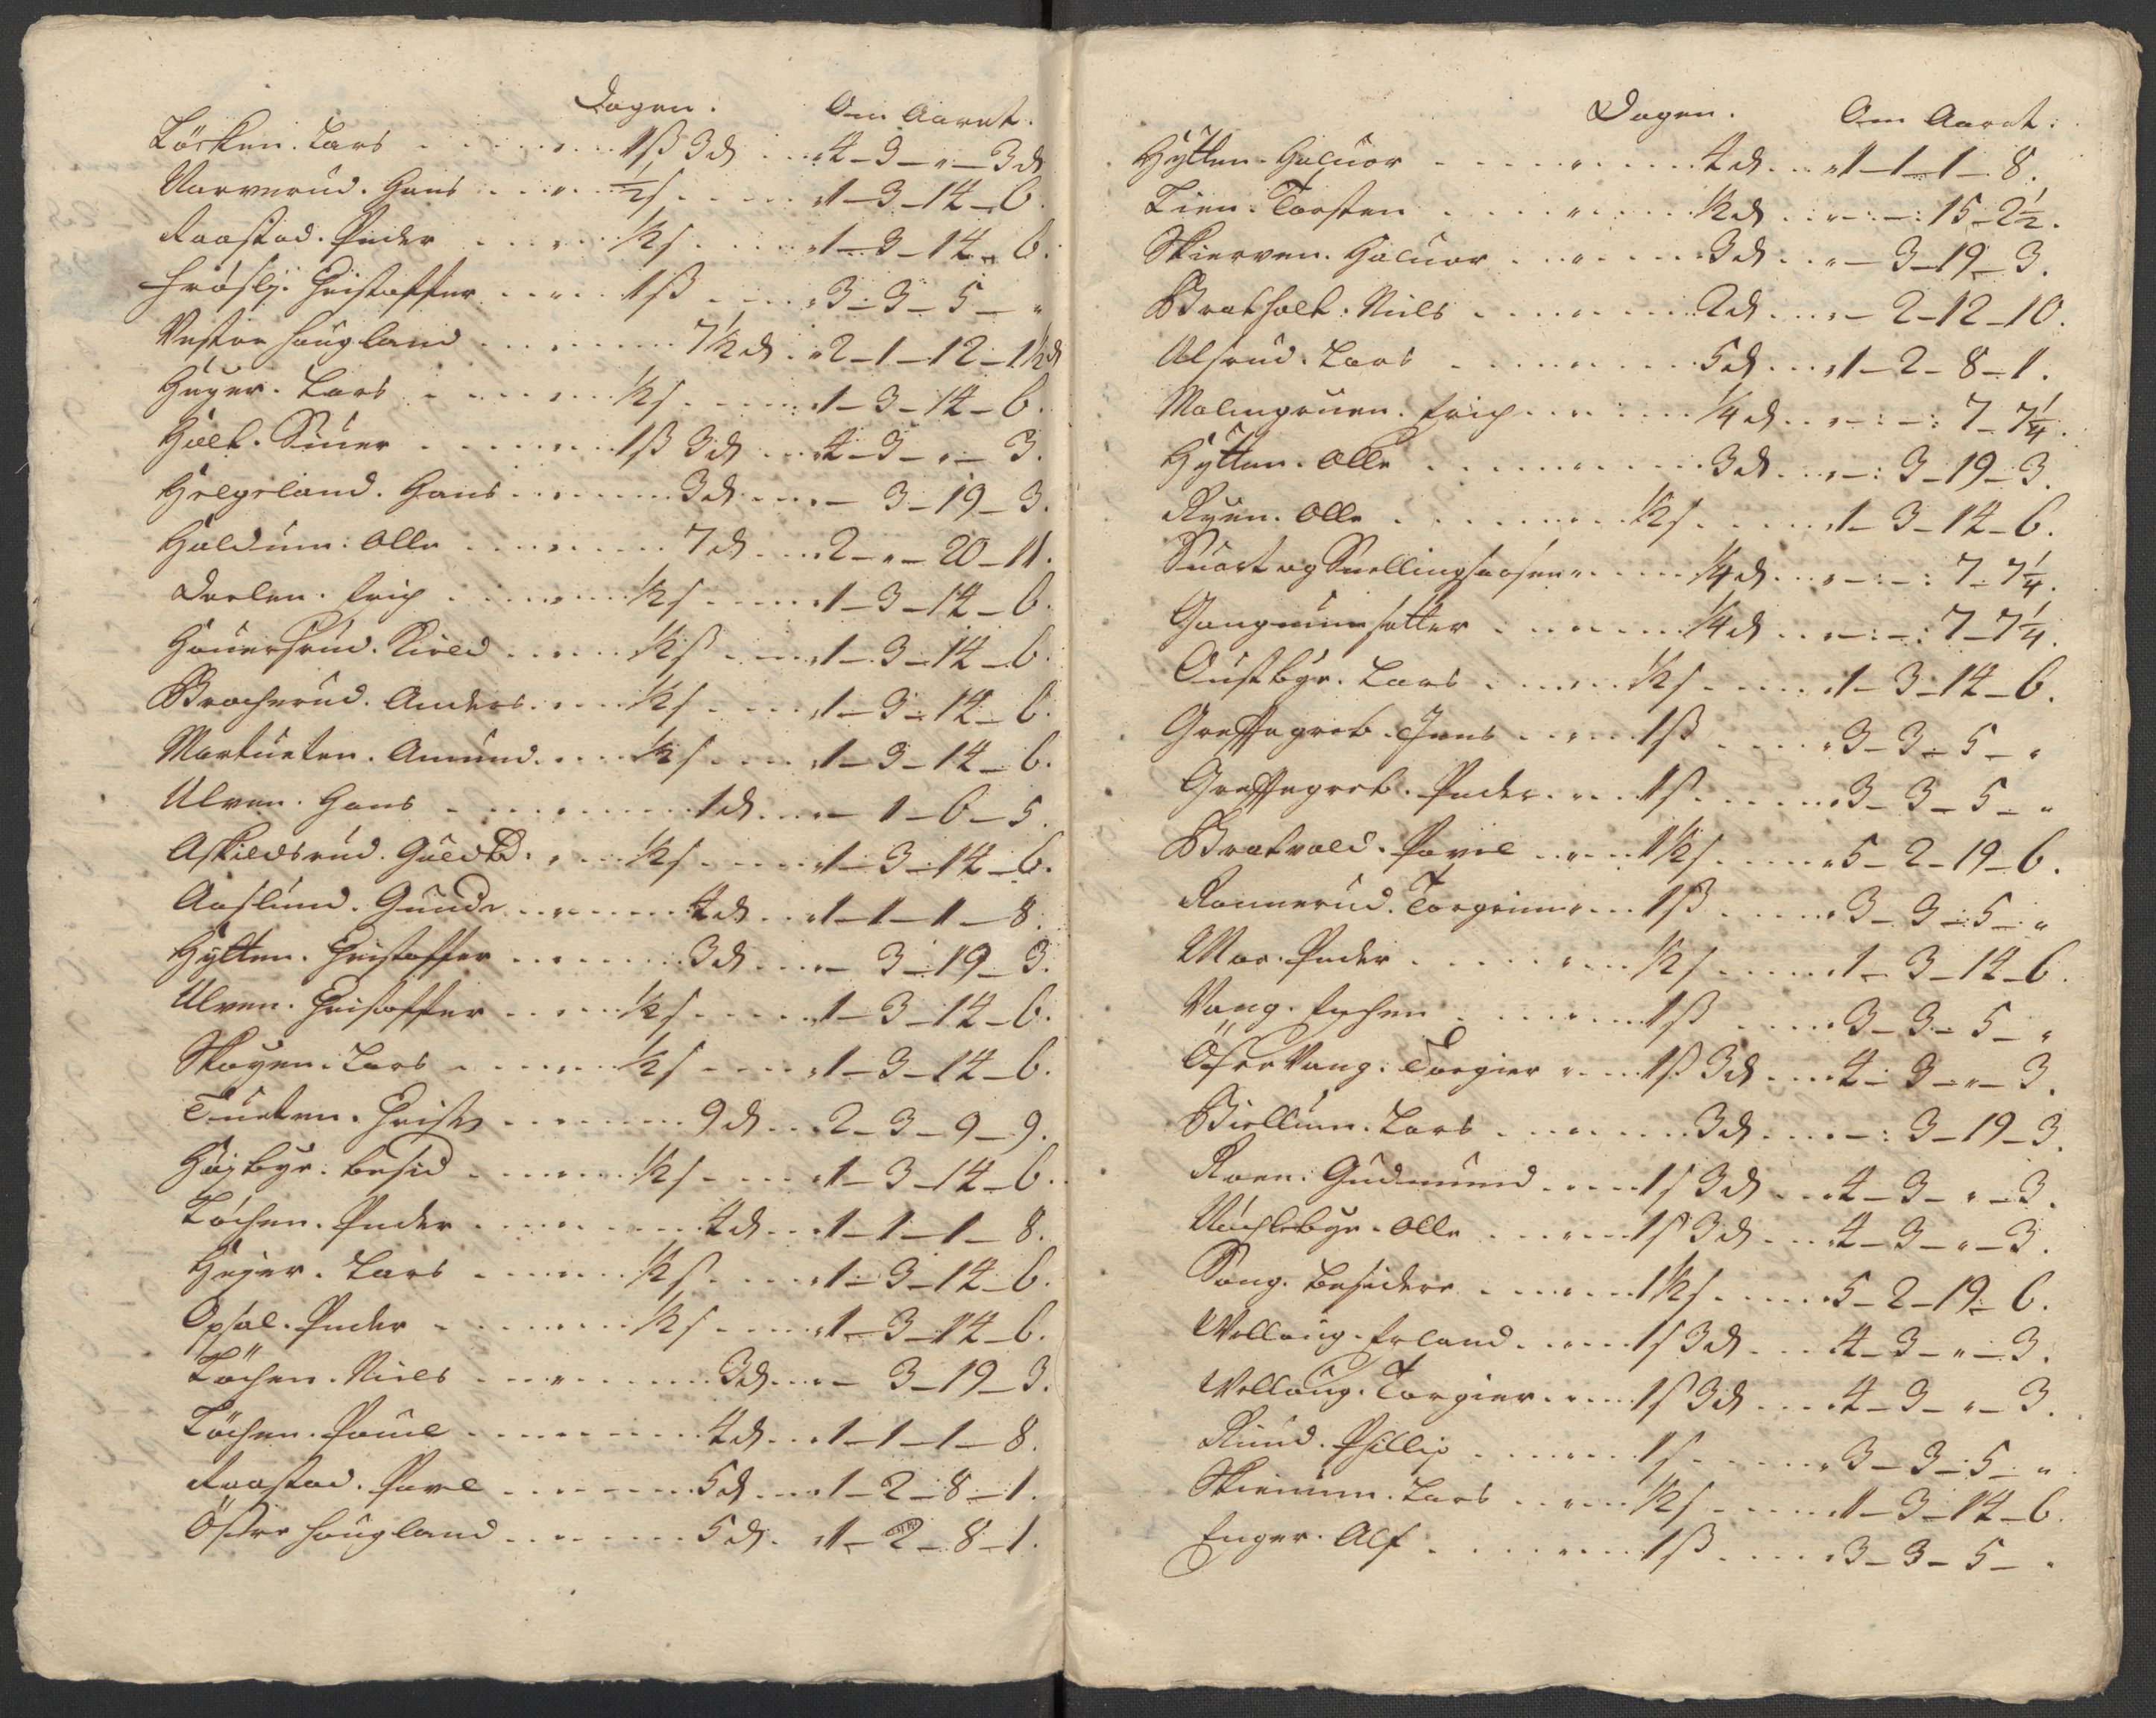 Dagen. Om Aaret.
Löcken. Lars 1ß 3d 4-3-"-3d
Narverud. Hans ½ß 1-3-14-6.
Raastad. Peder ½ß 1-3-14-6.
Fröslj. Christoffer 1ß 3-3-5-"
Vestre Hougland 7½d 2-1-12-1½d
Heyer. Lars ½ß 1-3-14-6.
Holt. Siuer 1ß 3d 4-3-"-3.
Helgeland. Hans 3d "-3-19-3.
Haldum. Olle 7d 2-"-20-11.
Dælen. Erich ½ß 1-3-14-6.
Houersrud. Kield ½ß 1-3-14-6.
Bracherud. Anders ½ß 1-3-14-6.
Martueten. Amund. ½ß 1-3-14-6.
Ulven. Hans 1d "-1-6-5.
Askildsrud. Guldbr. ½ß 1-3-14-6.
Aaslund. Gunder 4d 1-1-1-8.
Hytten. Christoffer 3d "-3-19-3.
Ulven. Christoffer ½ß 1-3-14-6.
Skoyen. Lars ½ß 1-3-14-6.
Tueten. Christ 9d 2-3-9-9.
Höybye. Besid ½ß 1-3-14-6.
Löchen. Peder 4d 1-1-1-8.
Heyer. Lars ½ß 1-3-14-6.
Opsal. Peder ½ß 1-3-14-6.
Löchen. Niels 3d "-3-19-3.
Löchen. Poule 4d 1-1-1-8.
Raastad. Povel 5d 1-2-8-1.
Östre Hougland 5d 1-2-8-1.
Dagen. Om Aaret.
Hytten. Haluor 4d 1-1-1-8.
Lien. Torsten ½d "-:-:15-2½.
Skierven. Haluor 3d "-3-19-3.
Bratholt. Niels 2d "-2-12-10.
Alsrud. Lars 5d 1-2-8-1.
Malingruen. Erich ¼d "-:-:7-7¼.
Hytten. Olle 3d "-:3-19-3.
Ryen. Olle ½ß 1-3-14-6.
Suart og Snellingsaasen ¼d "-:-:7-7¼.
Gangsumsetter ¼d "-:-:7-7¼.
Oustbye. Lars ½ß 1-3-14-6.
Greffsgreb. Jens 1ß 3-3-5-"
Greffsgreb. Peder 1ß 3-3-5-"
Bratvold. Povel 1½ß 5-2-19-6.
Rannerud. Torgrim 1ß 3-3-5-"
Moe. Peder ½ß 1-3-14-6.
Vang. 1ß 3-3-5-"
Öfre Vang. Torgier 1ß 3d 4-3-"-3.
Biellum. Lars 3d "-:3-19-3.
Roen. Gudmund 1ß 3d 4-3-"-3.
Nöchlebye. Olle 1ß 3d 4-3-"-3.
Sang. Besidere 1½ß 5-2-19-6.
Wellaug. Erland 1ß 3d 4-3-"-3.
Wellaug. Torgier 1ß 3d 4-3-"-3.
Rund. Phillip 1ß 3-3-5-"
Skienum. Lars ½ß 1-3-14-6.
Enger. Alf 1ß 3-3-5-"